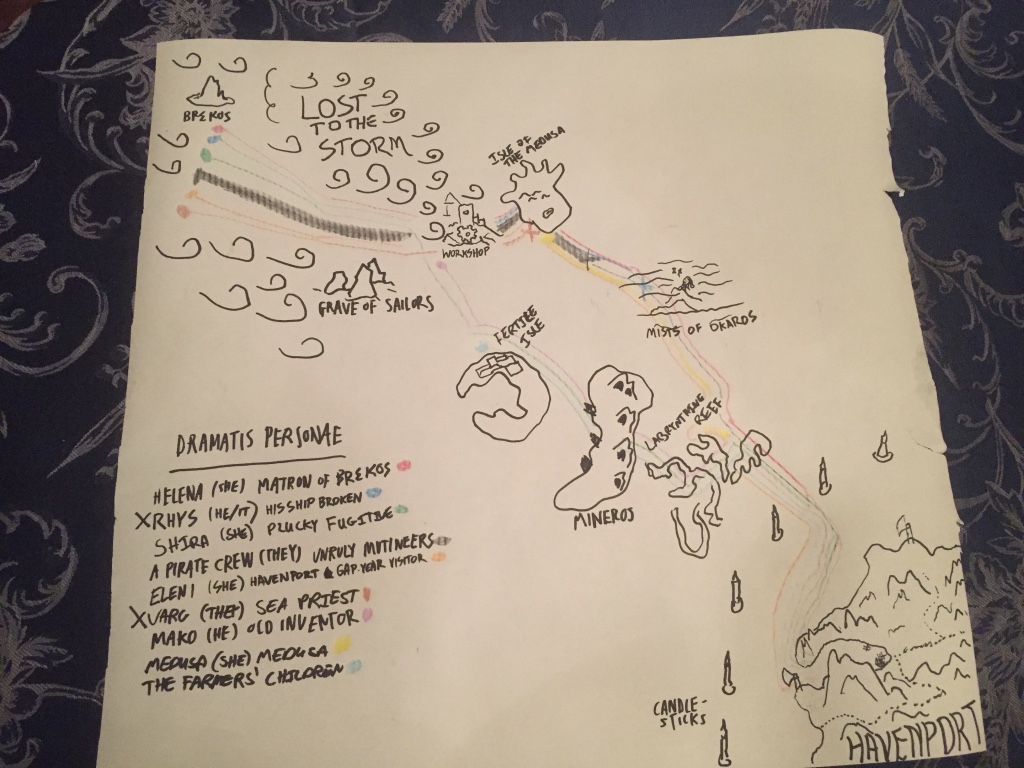 BREKOS
LOST
TO THE
STORM
ISLE OF
THE MEDUSA
WORKSHOP
GRAVE OF SAILORS
MISTS OF OKAROS
FERTILE
ISLE
LABRYNTHINE
REEF
MINEROS
DRAMATIS PERSONAE
HELENA (SHE) MATRON OF BREKOS
XRHYS (HE/IT) HIS SHIP BROKEN
SHIRA (SHE) PLUCKY FUGITIVE
A PIRATE CREW (THEY) UNRULY MUTINEERS
ELENI (SHE) HAVENPORT GAP-YEAR VISITOR
XVARG (THEY) SEA PRIEST
MAKO (HE) OLD INVENTOR
MEDUSA (SHE) MEDUSA
THE FARMERS' CHILDREN
CANDLE-
STICKS
HAVENPORT